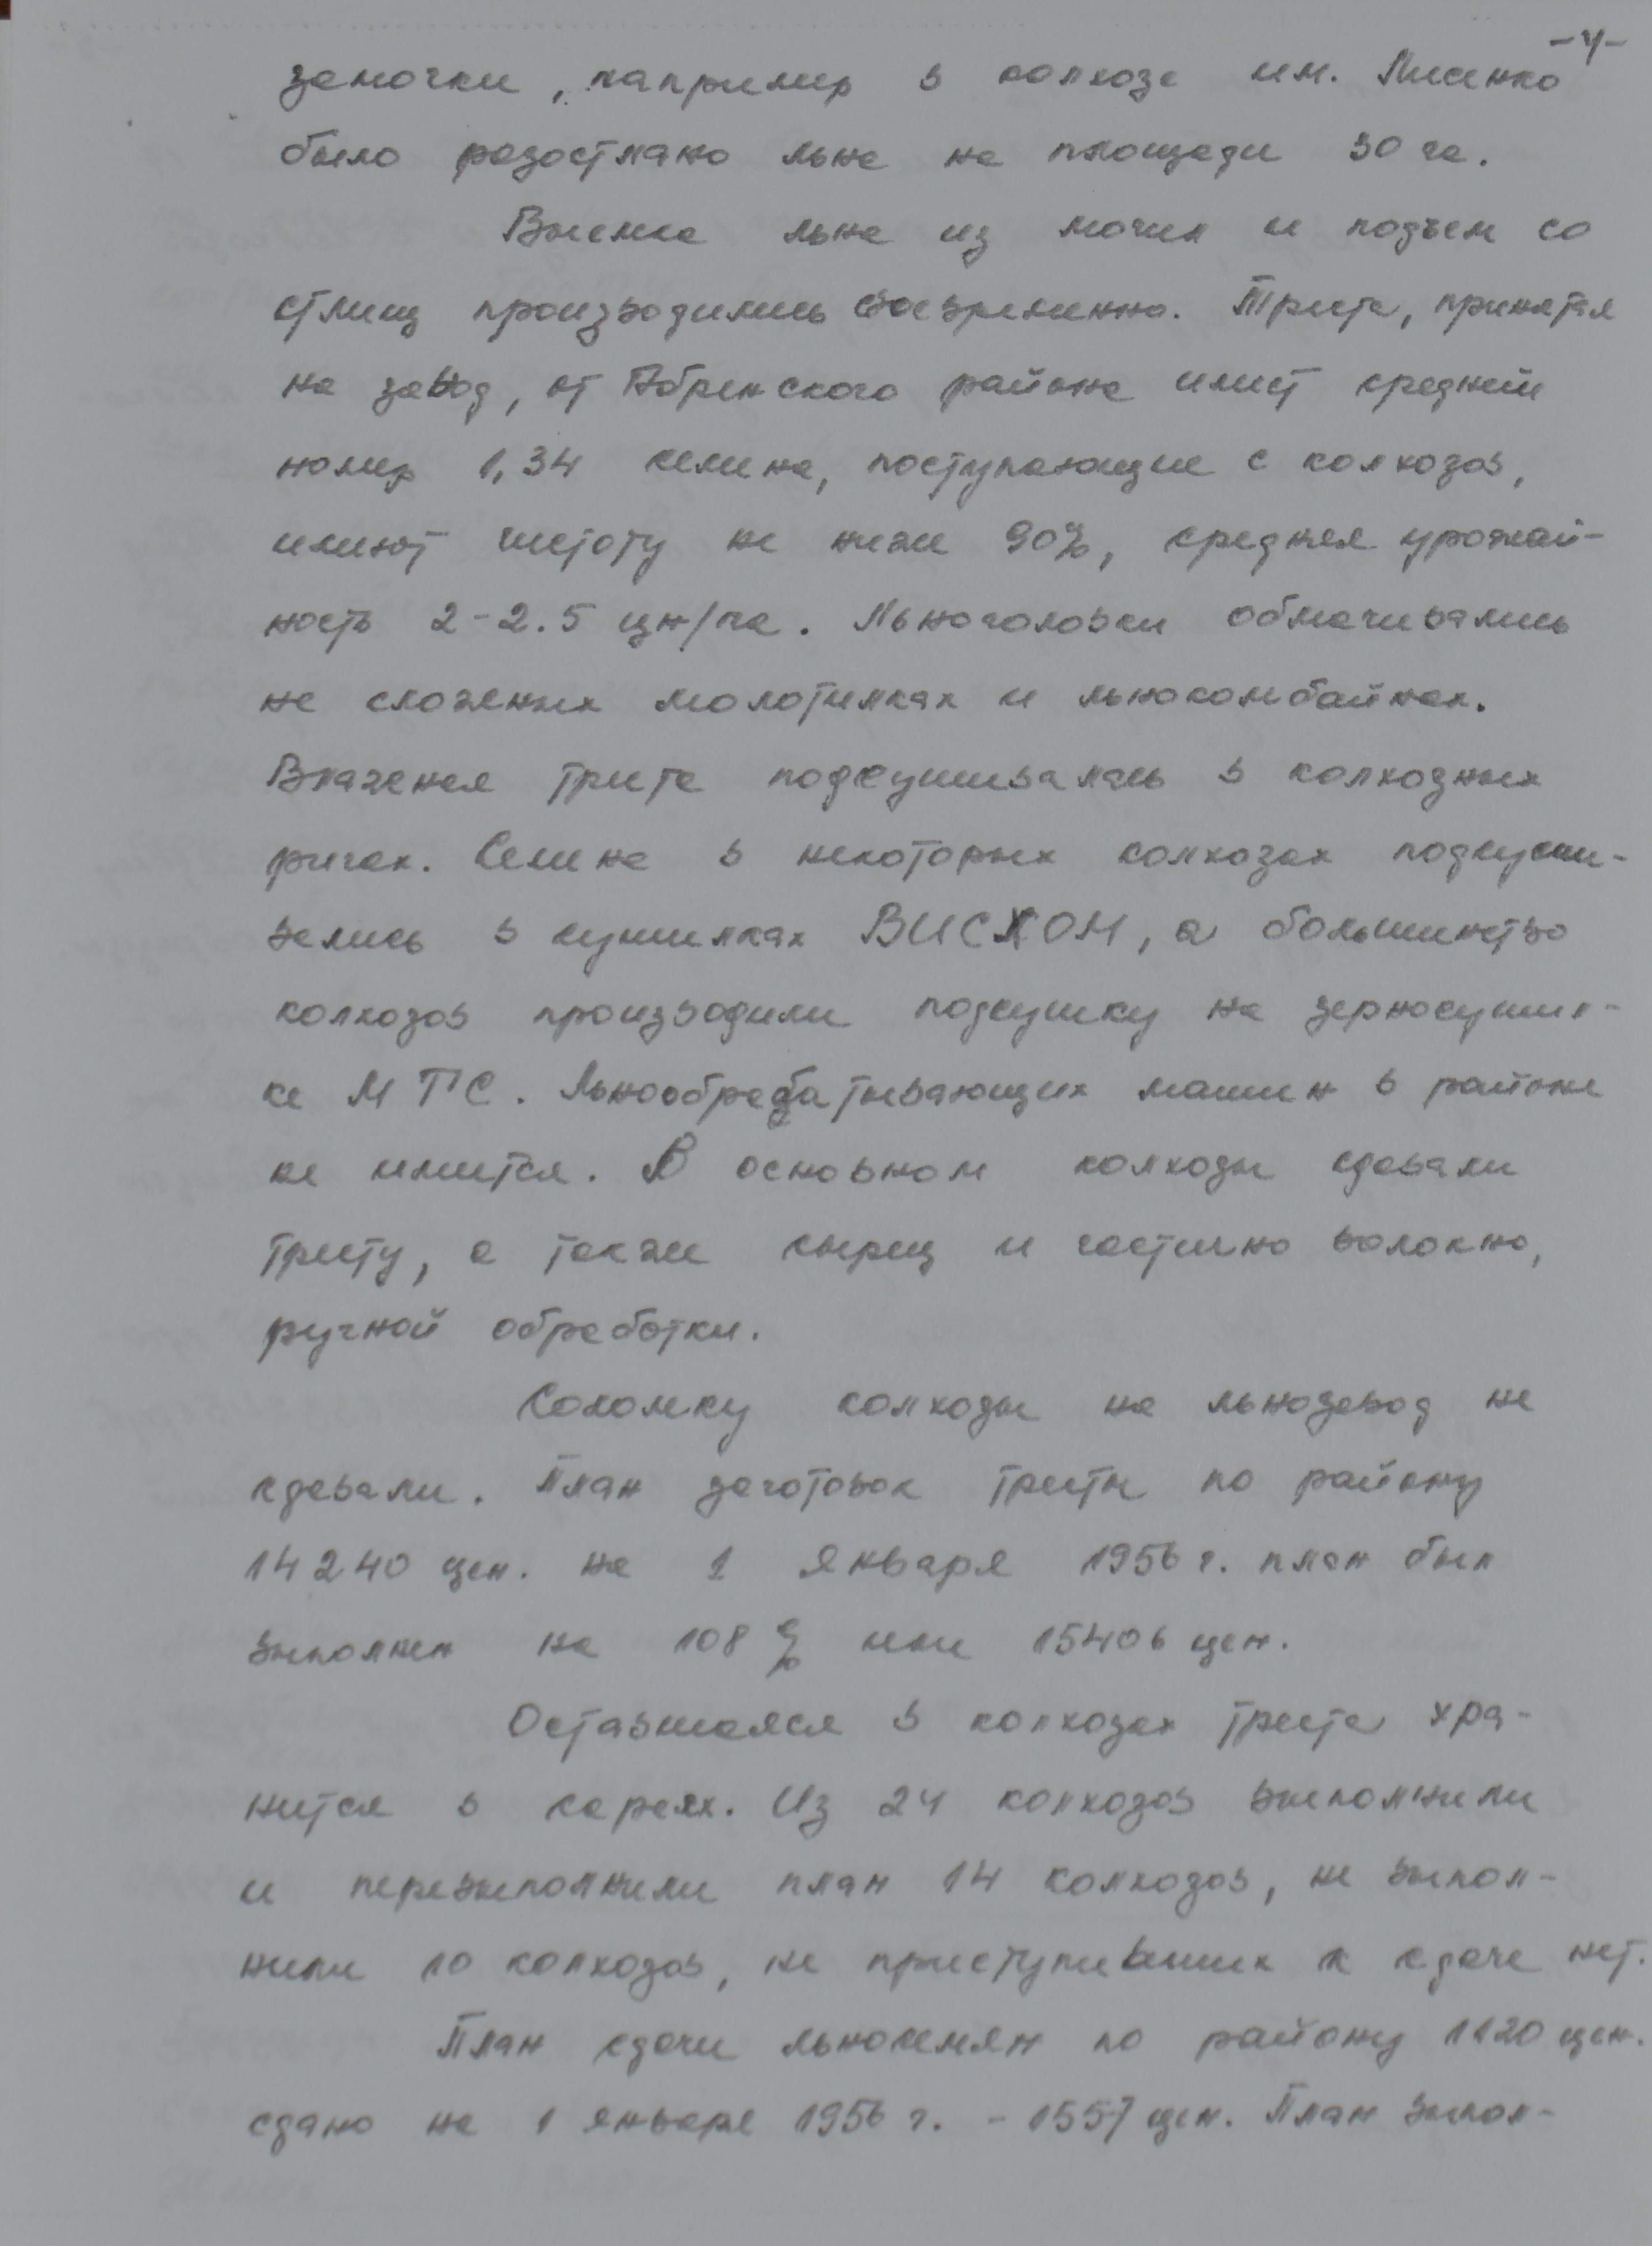 -4-
замочки, например в колхозе им. Лисенко
было разостлано льна на площади 30 га.
Выемка льна из мочил и подъем со
стлищ производились своевременно. Треста, принятая
на завод, от Абренского района имеет средний
номер 1,34 семена, поступающие с колхозов,
имеют чистоту не ниже 90%, средняя урожай-
ность 2-2.5 цн/га. Льноголовки обмачивались
на сложных молотилках и льнокомбайнах.
Влажная треста подсушивалась в колхозных
ригах. Семена в некоторых колхозах подсуши-
вались в сушилках ВИСХОМ, а большинство
колхозов производили подсушку на зерносушил-
ке МТС. Льнообрабатывающих машин в районе
не имеется. В основном колхозы сдавали
тресту, а также сырец и частично волокно,
ручной обработки.
Соломку колхозы на льнозавод не
сдавали. План заготовок тресты по району
14240 цен. на 1 января 1956 г. план был
выполнен на 108% или 15406 цен.
Оставшаяся в колхозах треста хра-
нится в сараях. Из 24 колхозов выполнили
и перевыполнили план 14 колхозов, не выпол-
нили 10 колхозов, не приступивших к сдаче нет.
План сдачи льносемян по району 1120 цен.
сдано на 1 января 1956 г. - 1557 цен. План выпол-